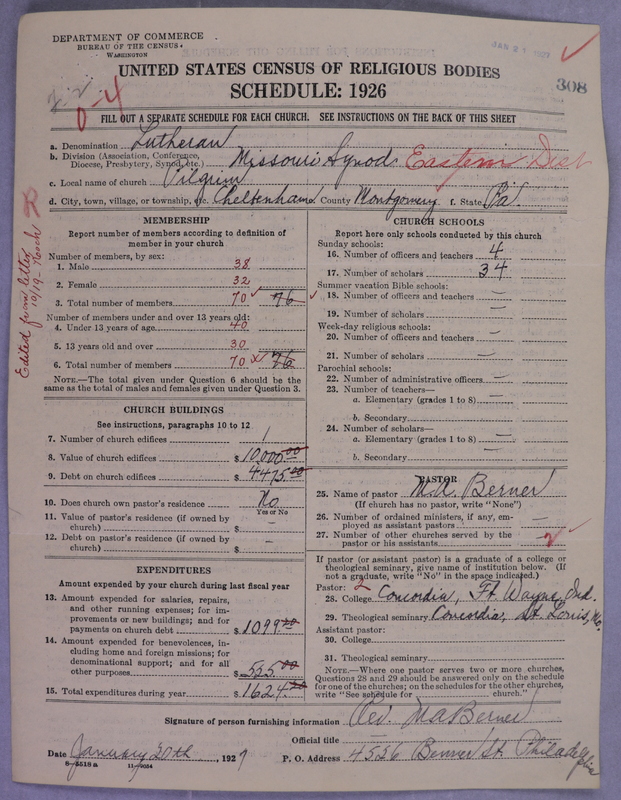 DEPARTMENT OF COMMERCE
BUREAU OF THE CENSUS
WASHINGTON
JAN 21 1927
308
UNITED STATES CENSUS OF RELIGIOUS BODIES
SCHEDULE: 1926
0-4
FILL OUT A SEPARATE SCHEDULE FOR EACH CHURCH. SEE INSTRUCTIONS ON THE BACK OF THIS SHEET
a. Denomination Lutheran
b. Division (Association, Conference, Diocese, Presbytery, Synod, etc.) Missouri Synod Eastern Dist
c. Local name of church Pilgrim
d. City, town, village, or township, etc. Cheltenham County Montgomery f. State Pa.
Edited from letter
10/19-
MEMBERSHIP
Report number of members according to definition of
member in your church
Number of members, by sex:
1. Male 38
2. Female 32
3. Total number of members 70 76
Number of members under and over 13 years old:
4. Under 13 years of age 40
5. 13 years old and over 30
6. Total number of members 70 76
NOTE.—The total given under Question 6 should be
the same as the total of males and females given under Question 3.
CHURCH BUILDINGS
See instructions, paragraphs 10 to 12
7. Number of church edifices 1
8. Value of church edifices $10,000.00
9. Debt on church edifices $4475.00
10. Does church own pastor's residence No
Yes or No
11. Value of pastor's residence (if owned by
church) $ –
12. Debt on pastor's residence (if owned by
church) $ –
EXPENDITURES
Amount expended by your church during last fiscal year
13. Amount expended for salaries, repairs,
and other running expenses; for im-
provements or new buildings; and for
payments on church debt $1099.20
14. Amount expended for benevolences, in-
cluding home and foreign missions; for
denominational support; and for all
other purposes $525.00
15. Total expenditures during year $1624.20
CHURCH SCHOOLS
Report here only schools conducted by this church
Sunday schools:
16. Number of officers and teachers 4
17. Number of scholars 34
Summer vacation Bible schools:
18. Number of officers and teachers –
19. Number of scholars –
Week-day religious schools:
20. Number of officers and teachers –
21. Number of scholars –
Parochial schools:
22. Number of administrative officers –
23. Number of teachers—
a. Elementary (grades 1 to 8) –
b. Secondary –
24. Number of scholars—
a. Elementary (grades 1 to 8) –
b. Secondary –
PASTOR
25. Name of pastor M.A. Berner
(If church has no pastor, write "None")
26. Number of ordained ministers, if any, em-
ployed as assistant pastors –
27. Number of other churches served by the
pastor or his assistants
If pastor (or assistant pastor) is a graduate of a college or
theological seminary, give name of institution below. (If
not a graduate, write "No" in the space indicated.)
Pastor: 2
28. College Concordia, Ft. Wayne, Ind.
29. Theological seminary Concordia, St. Louis, Mo.
Assistant pastor:
30. College
31. Theological seminary
NOTE.—Where one pastor serves two or more churches,
Questions 28 and 29 should be answered only on the schedule
for one of the churches; on the schedules for the other churches,
write "See schedule for church."
Signature of person furnishing information Rev. M A Berner
Official title
Date January 20th, 1927 P. O. Address 4536 Benner St. Philadelphia
8-5518 a 11-9024